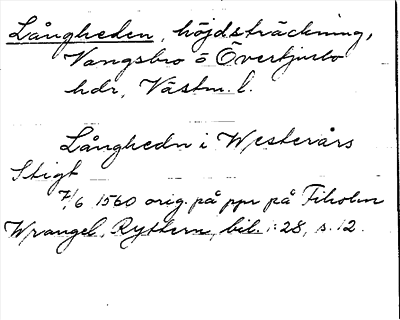 Långheden, höjdsträckning,
Vangsbro o Övertjurbo
hdr, Västm. l.
Långhedn i Westerårs
Stigt
7/6 1560 orig. på ppr på Tiholm
Wrangel, Ryttern, bil. 1:28, s. 12.